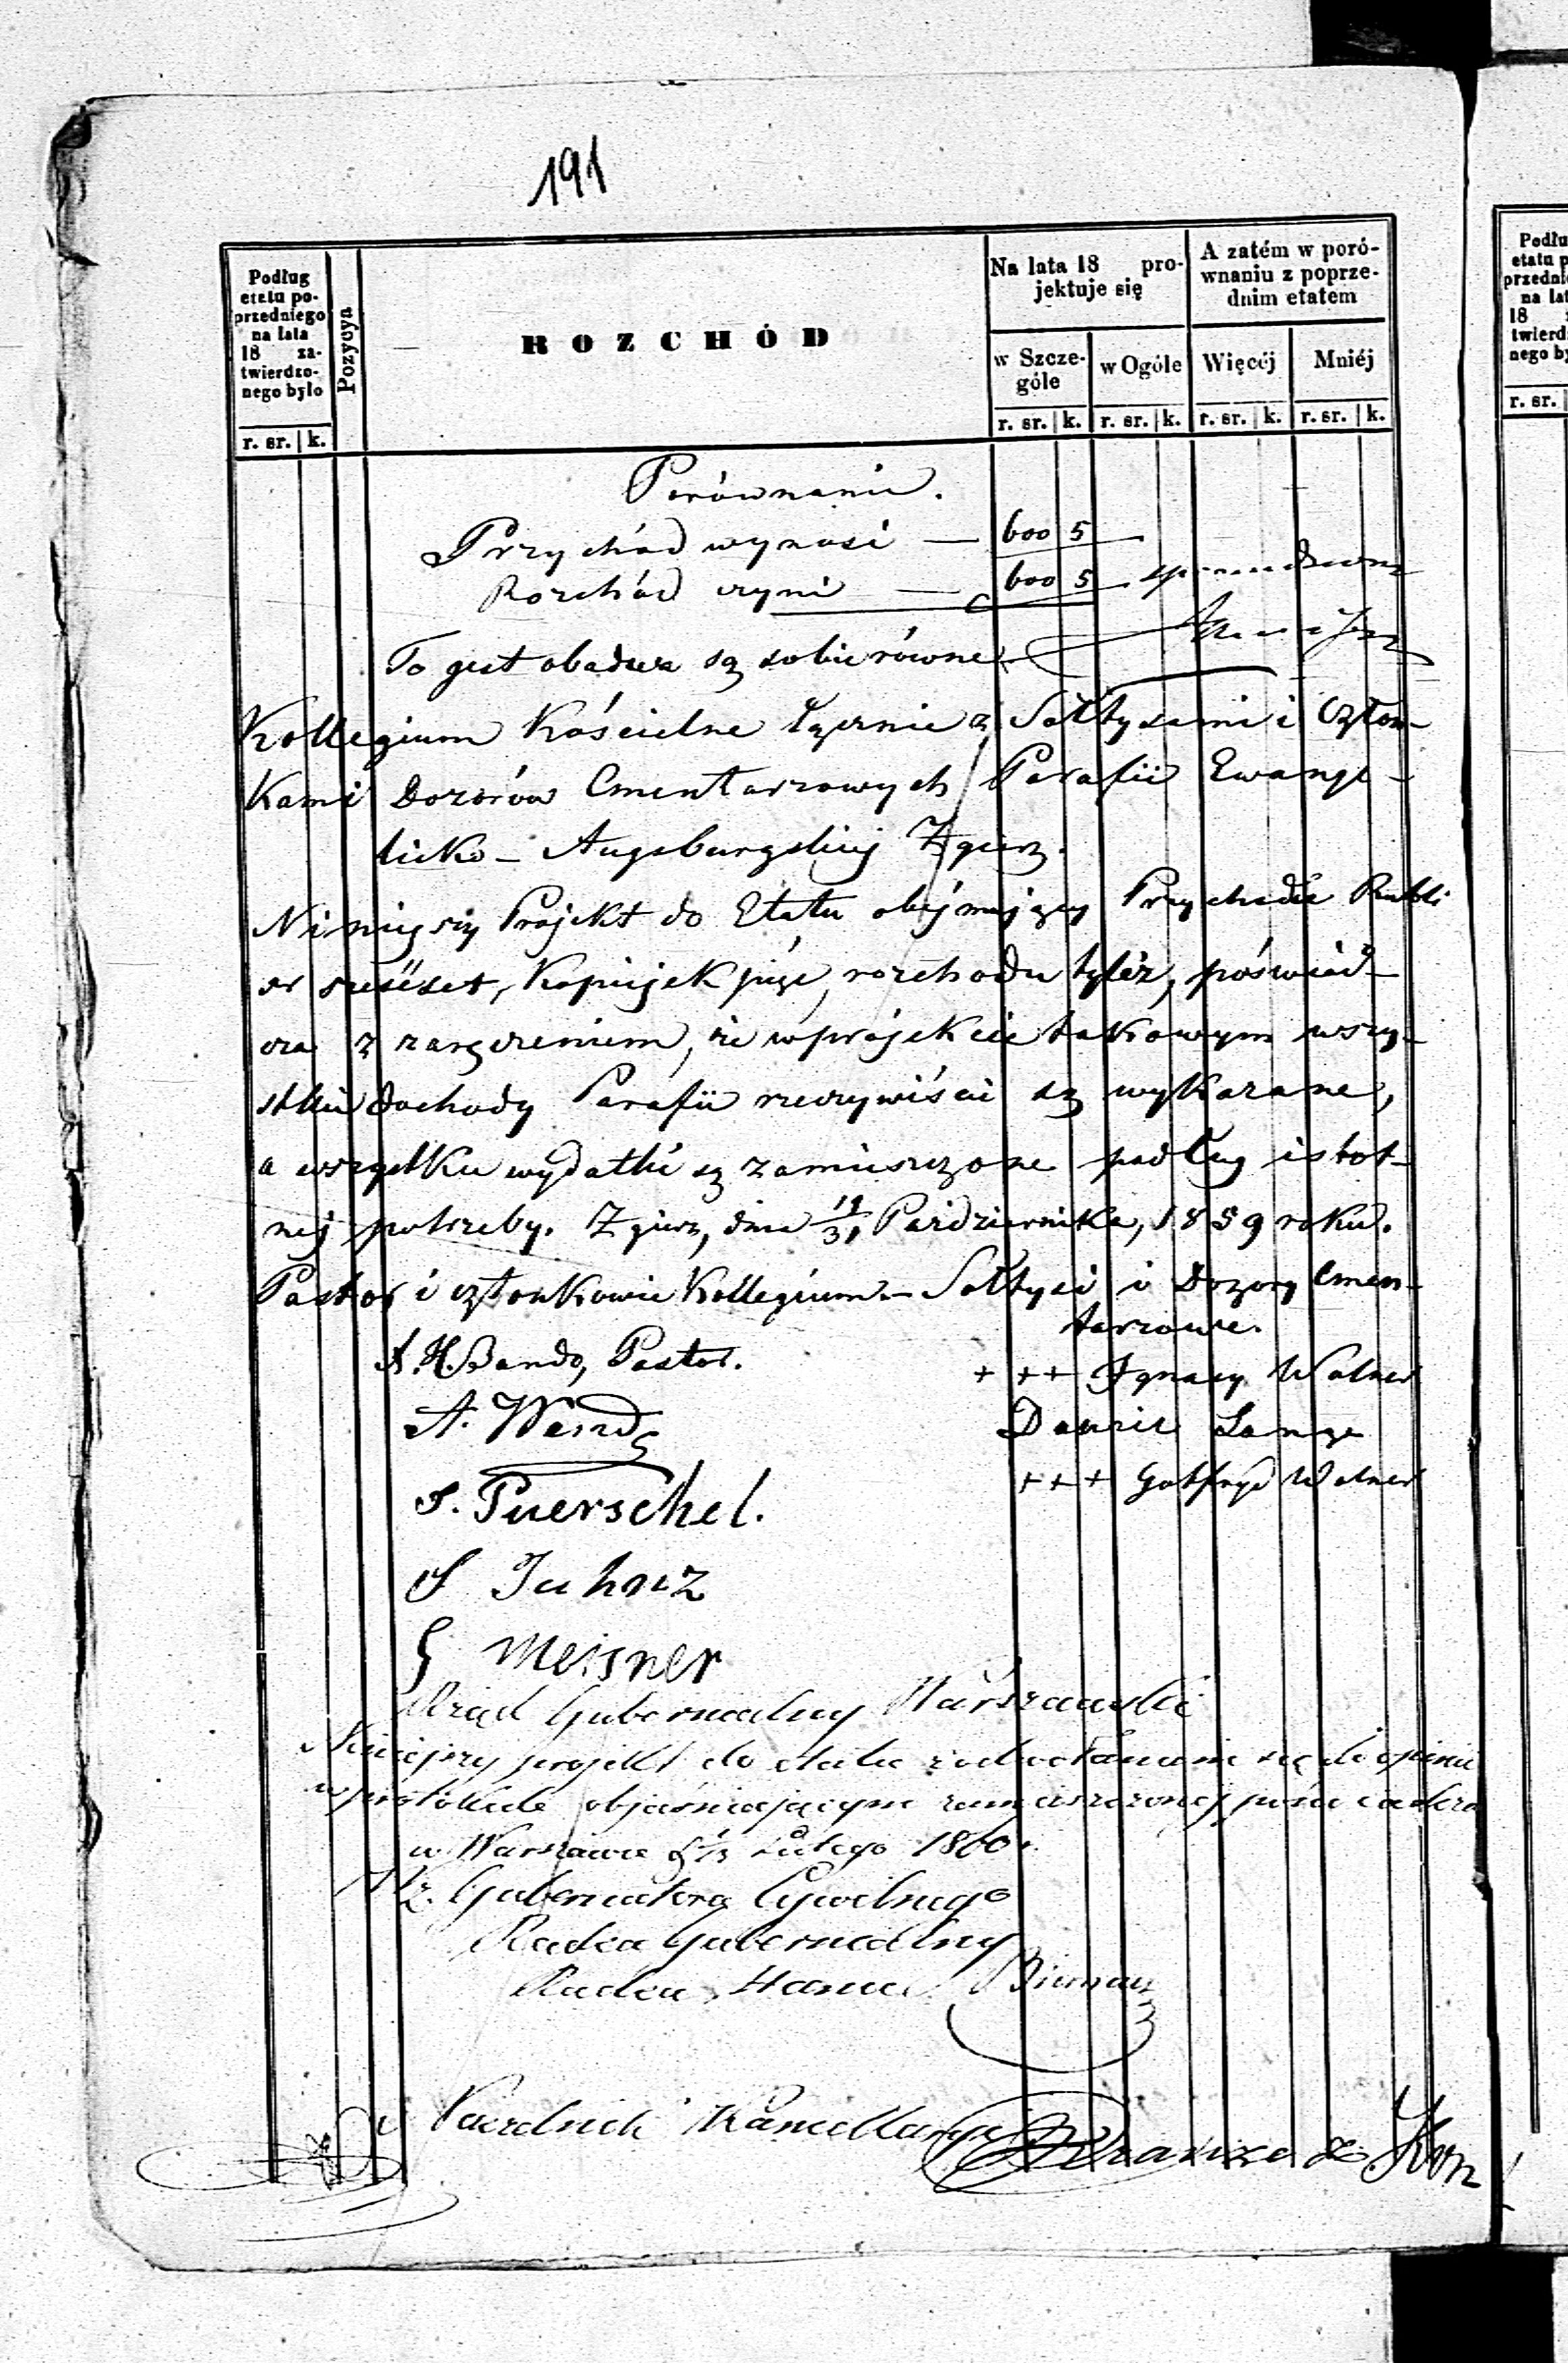 191
Podług
etatu po-
przedniego
na lata
18 za-
twierdzo-
nego było
r. sr. k.
Pozycya
ROZCHÓD
Na lata 18 pro-
jektuje się
w Szcze-
góle
r. sr. k.
w Ogóle
r. sr. k.
A zatém w poró-
wnaniu z poprze-
dnim etatem
Więcéj
r. sr. k.
Mniéj
r. sr. k.
Porównanie.
Przychód wynosi — 600 5
Rozchód czyni — 600 5
To jest obadwa są sobie równe
Kollegium Kościelne łącznie z Sołtysami i Człon-
kami Dozorów Cmentarzowych Parafii Ewange-
licko-Augsburgskiej Zgierz.
Niniejszy Projekt do Etatu obejmujący Przychodu Rubli
sr sześćset, Kopiejek pięć, rozchodu tyleż, poświad-
cza z zaręczeniem, że w projekcie takowym wszy-
stkie dochody Parafii rzeczywiście są wykazane,
a wszystkie wydatki są zamieszczone podług istot-
nej potrzeby. Zgierz, dnia 19/31 Października, 1859 roku.
Pastor i członkowie Kollegium.— Sołtysi i Dozory Cmen-
tarzowe.
Bando, Pastor.
+++ Ignacy Walner
A. Wende
Daniel Lange
+++ Gotfryd Walner
Puerschel.
S Juhnz
Meisner
Rząd Gubernialny Warszawski
Niniejszy projekt do etatu z odwołaniem się do opinii
w protokule objaśniającym zamieszczonej poświadcza
w Warszawie d 1/13 Lutego 1860 r.
Gubernatora Cywilnego
Radca Gubernialny
Radca
Naczelnik Kancellaryi
Podłu
etatu p
przednie
na lat
18
twierd
nego by
r. sr.